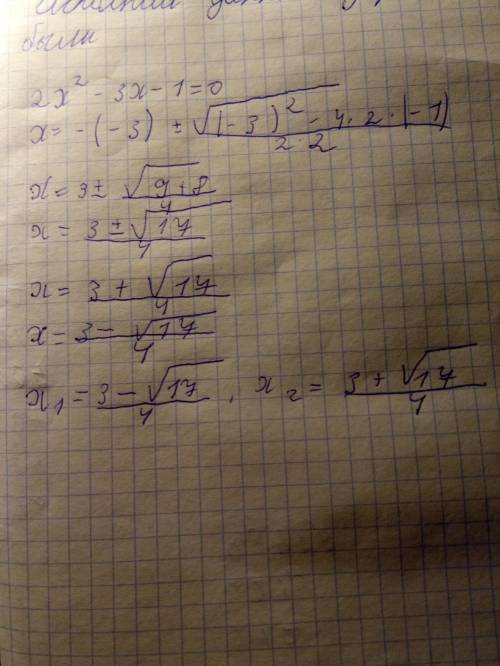 были
2x² - 3x - 1 = 0
x = -(-3) ± √(-3)² - 4·2·(-1) / 2·2
x = 3 ± √9 + 8 / 4
x = 3 ± √17 / 4
x = 3 + √17 / 4
x = 3 - √17 / 4
x₁ = 3 - √17 / 4, x₂ = 3 + √17 / 4